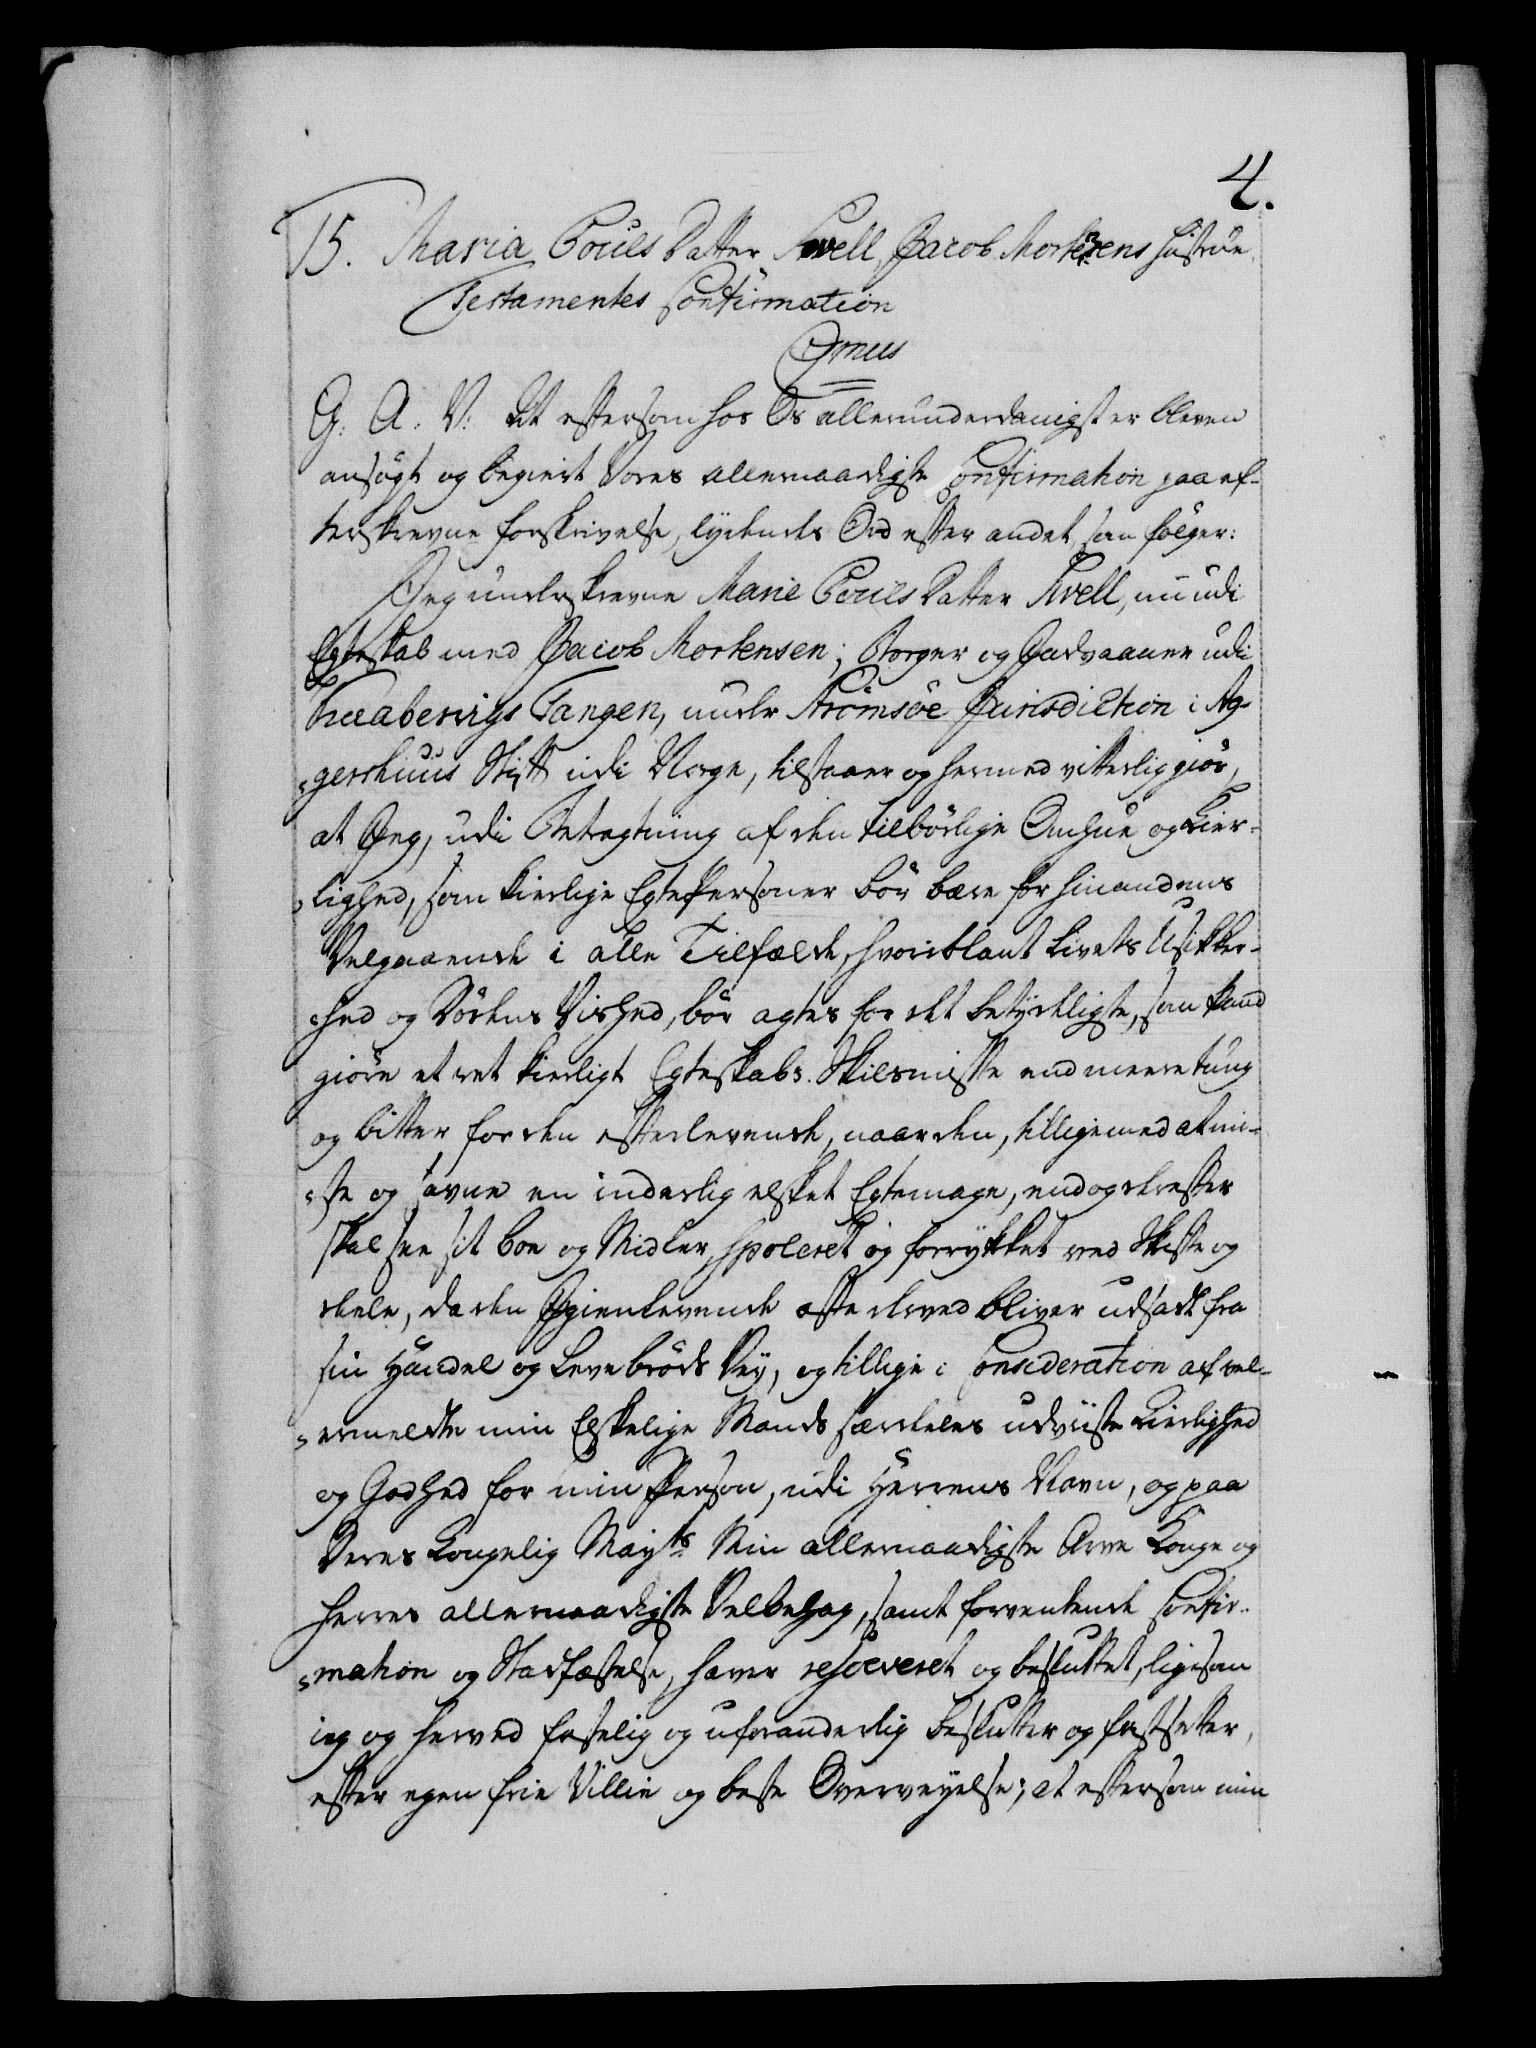 4.
15. Maria Pouls Datter Kvell, Jacob Mortensens Hustrue,
Testamentes Confirmation
Omus
G. A. V: At eftersom hos Os allerunderdanigst er bleven
ansøgt og begiert Vores allernaadigste Confirmation paa ef-
terskrevne forskrivelse, lydende Ord efter andet, som følger:
Jeg underskrevne Marie Pouls Datter Kvell, nu udi
Egteskab med Jacob Mortensen; Borger og Indvaaner udi
Svaabervigs Tangen, under Strømsøe Jurisdiction i Ag-
gershuus Stift udi Norge, tilstaaer og hermed vitterlig giør,
at Jeg, udi Betragtning af den tilbørlige Omhue og Kier-
lighed, som kierlige EgtePersoner bør bære for hinandens
Velgaaende i alle Tilfælde, hvoriblant Livets Usikker-
hed og Dødens Vished, bør agtes for det betydeligste, som kand
giøre et ret kierligt Egteskabs Skilsmisse end meere tung
og bitter for den efterlevende, naar den, tilligemed at mi-
ste og savne en inderlig elsket Egtemage, endog derefter
skal see sit boe og Midler spoleret og forrykket ved Skifte og
deele, da den Igienlevende ofte derved bliver udsadt fra
sin Handel og Levebrøds Vey, og tillige i Consideration af vel-
ermeldte min Elskelige Mands særdeles udviiste Kierlighed
og Godhed for min Person, udi Herrens Navn, og paa
Deres Kongelig Mayts Min allernaadigste Arve Konge og
Herres allernaadigste Velbehag, samt forventende Confir-
mation og Stadfæstelse, haver resolveret og besluttet, ligesom
ieg og herved fastelig og uforanderlig beslutter og fastsetter,
efter egen frie Villie og beste Overveyelse; at eftersom min